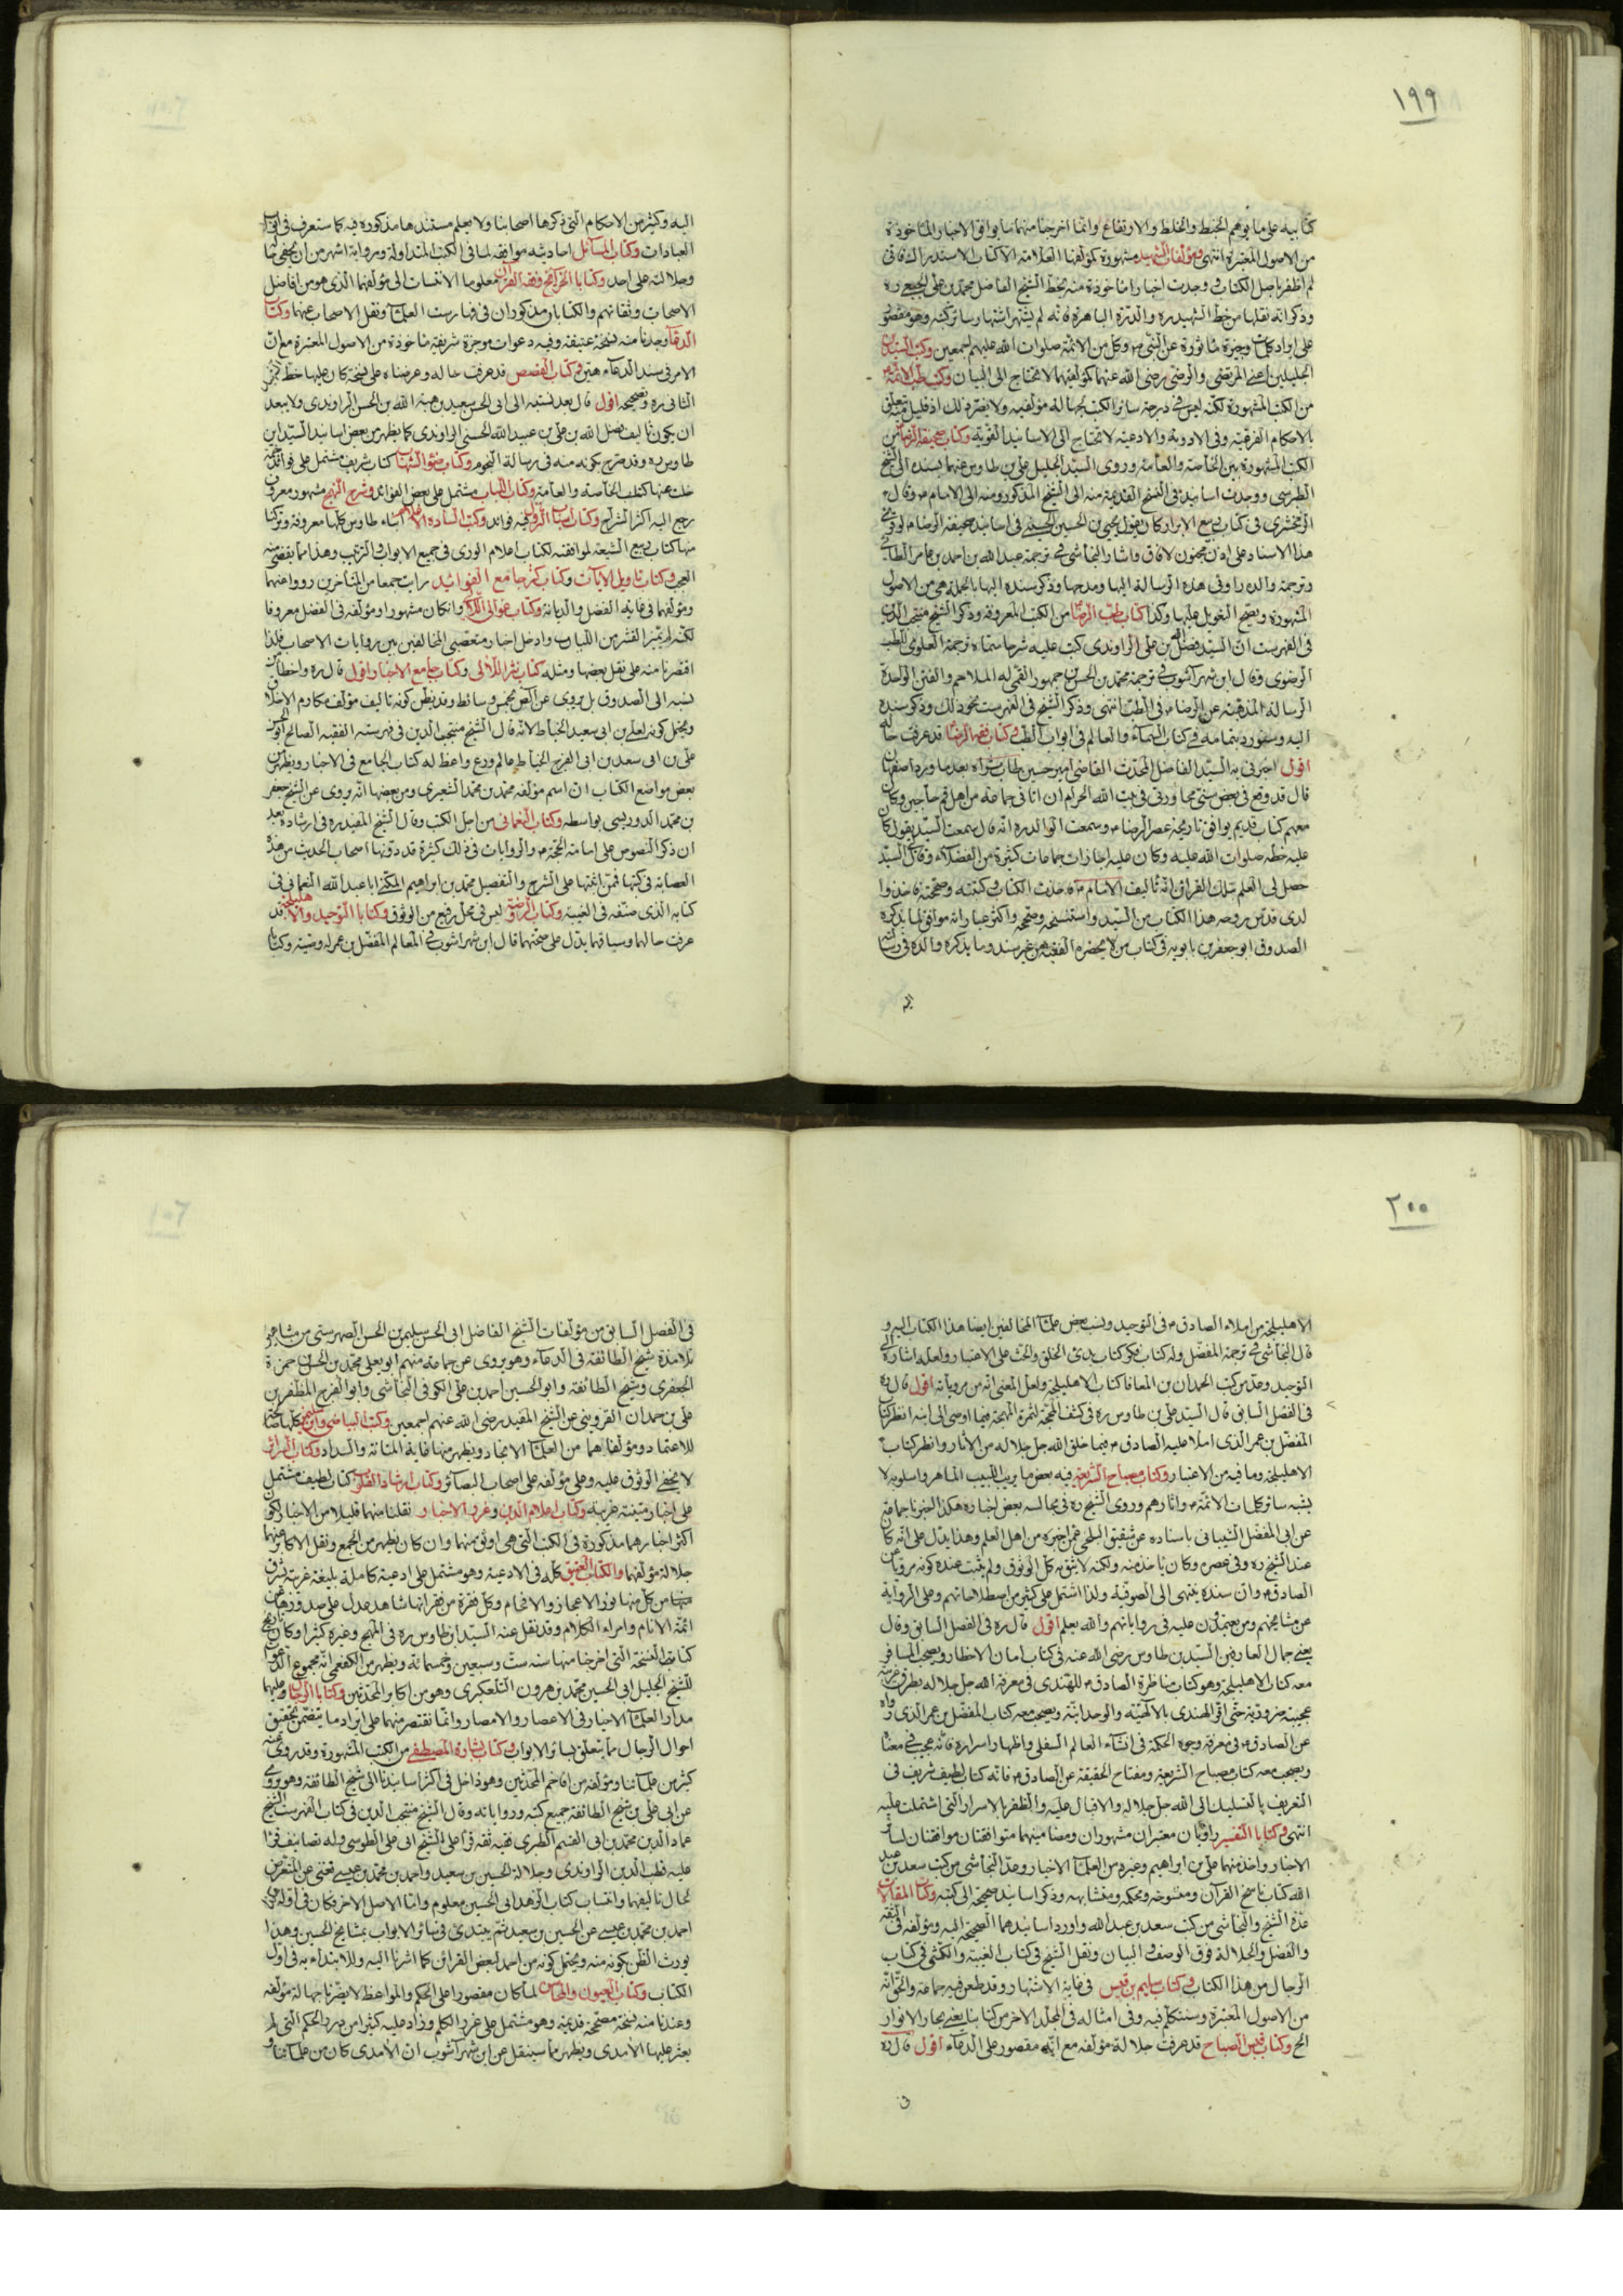 ١٩٩
كتابيه على ما يوهم الخبط والخلط والارتفاع وانما اخرجنا منهما ما يوافق الاخبار المأخوذة
من الاصول المعتبرة انتهى ومؤلفات الشهيد مشهورة كمؤلفها العلامة الا كتاب الاستدراك فاني
لم اظفر باصل الكتاب و وجدت اخبارا مأخوذة منه بخط الشيخ الفاضل محمد بن علي الجبعي ره
وذكر انه نقلها من خط الشهيد ره والدرة الباهرة فانه لم يشتهر اشتهار سائر كتبه وهو مقصور
على ايراد كلمات وجيزة مأثورة عن النبي ص وكل من الائمة صلوات الله عليهم اجمعين وكتب السيدين
الجليلين اعني المرتضى والرضي رضي الله عنهما كمؤلفيهما لا تحتاج الى البيان وكتاب طب الائمة
من الكتب المشهورة لكنه ليس في درجة سائر الكتب لجهالة مؤلفيه ولا يضر ذلك اذ قليل منه يتعلق
بالاحكام الفرعية وفي الادوية والادعية لا تحتاج الى الاسانيد القوية وكتاب صحيفة الرضا من
الكتب المشهورة بين الخاصة والعامة وروى السيد الجليل علي بن طاوس عنها بسنده الى الشيخ
الطبرسي ووجدت اسانيد في النسخ القديمة منه الى الشيخ المذكور ومنه الى الامام ع وقال
الزمخشري في كتاب ربيع الابرار كان يقول يحيى بن الحسين الحسني في اسانيد صحيفة الرضا ع لو قرئ
هذا الاسناد على اذن مجنون لافاق واشار النجاشي في ترجمة عبد الله بن احمد بن عامر الطائي
وترجمة والده راوي هذه الرسالة اليها ومدحها وذكر سنده اليها بالجملة هي من الاصول
المشهورة ويصح التعويل عليها وكذا كتاب طب الرضا من الكتب المعروفة وذكر الشيخ منتجب الدين
في الفهرست ان السيد فضل الله بن علي الراوندي كتب عليه شرحا سماه ترجمة العلوي للطب
الرضوي وقال ابن شهرآشوب في ترجمة محمد بن الحسن بن جمهور القمي له الملاحم والفتن الواحدة
الرسالة المذهبة عن الرضا ع في الطب انتهى وذكر الشيخ في الفهرست نحو ذلك وذكر سنده
اليه وسنورده بتمامه في كتاب السماء والعالم في ابواب الطب وكتاب فقه الرضا قد عرفت حاله
اقول اخبرني به السيد الفاضل المحدث القاضي امير حسين طاب ثراه بعد ما ورد اصفهان
قال قد وقع في بعض سني مجاورتي في بيت الله الحرام ان اتاني جماعة من اهل قم حاجين وكان
معهم كتاب قديم يوافق تاريخه عصر الرضا ع وسمعت الوالد ره انه قال سمعت السيد يقول كان
عليه خطه صلوات الله عليه وكان عليه اجازات جماعات كثيرة من الفضلاء وقال السيد
حصل لي العلم بتلك القرائن انه تأليف الامام ع فاخذت الكتاب وكتبته وصححته فاخذ والدي
لدى قدس روحه هذا الكتاب من السيد واستنسخه وصححه واكثر عباراته موافق لما يذكره
الصدوق ابو جعفر بن بابويه في كتاب من لا يحضره الفقيه من غير سند وما يذكره والده في رسالته
اليه وكثير من الاحكام التي ذكرها اصحابنا ولا يعلم مستندها مذكورة فيه كما ستعرف في ابواب
العبادات وكتاب المسائل احاديثه موافقة لما في الكتب المتداولة وراويه اشهر من ان يخفى حاله
وجلالته على احد وكتابا الخرائج وفقه القرآن معلوما الانتساب الى مؤلفهما الذي هو من افاضل
الاصحاب وثقاتهم والكتابان مذكوران في فهارست العلماء ونقل الاصحاب عنهما وكتاب
الدعاء وجدنا منه نسخة عتيقة وفيه دعوات موجزة شريفة مأخوذة من الاصول المعتبرة مع ان
الامر في سند الدعاء هين وكتاب القصص قد عرفت حاله وعرضناه على نسخة كان عليها خط الشهيد
الثاني ره وتصحيحه اقول قال بعد نسبته الى ابي الحسن سعيد بن هبة الله بن الحسن الراوندي ولا يبعد
ان يكون تأليف فضل الله بن علي بن عبيد الله الحسني الراوندي كما يظهر من بعض اسانيد السيد ابن
طاوس ره وقد صرح بكونه منه في رسالة النجوم وكتاب ضوء الشهاب كتاب شريف مشتمل على فوائد جمة
خلت عنها كتب الخاصة والعامة وكتاب اللباب مشتمل على بعض الفوائد وشرح النهج مشهور معروف
رجع اليه اكثر الشراح وكتاب اسباب النزول فيه فوائد وكتب السادة الاعلام ابناء طاوس كلها معروفة وتركنا
منها كتاب ربيع الشيعة لموافقته لكتاب اعلام الورى في جميع الابواب والترتيب وهذا مما يقضى منه
العجب وكتاب تأويل الآيات وكتاب كنز جامع الفوائد رأيت جمعا من المتأخرين رووا عنهما
ومؤلفهما في غاية الفضل والديانة وكتاب عوالي اللآلي وان كان مشهورا ومؤلفه في الفضل معروفا
لكنه لم يميز القشر من اللباب وادخل اخبار متعصبي المخالفين بين روايات الاصحاب فلذا
اقتصرنا منه على نقل بعضها ومثله كتاب نثر اللآلي وكتاب جامع الاخبار اقول قال ره واخطأ من
نسبه الى الصدوق بل يروي عن الصدوق بخمس وسائط وقد يظن كونه تأليف مؤلف مكارم الاخلاق
ويحتمل كونه لعلي بن ابي سعيد الخياط لانه قال الشيخ منتجب الدين في فهرسته الفقيه الصالح ابو الحسن
علي بن ابي سعد بن ابي الفرج الخياط عالم ورع واعظ له كتاب الجامع في الاخبار ويظهر من
بعض مواضع الكتاب ان اسم مؤلفه محمد بن محمد الشعيري ومن بعضها انه يروي عن الشيخ جعفر
بن محمد الدوريستي بواسطة وكتاب النعماني من اجل الكتب وقال الشيخ المفيد ره في ارشاده بعد
ان ذكر النصوص على امامة الحجة ع والروايات في ذلك كثيرة قد دونها اصحاب الحديث من هذه
العصابة في كتبها فممن اثبتها على الشرح والتفصيل محمد بن ابراهيم المكنى ابا عبد الله النعماني في
كتابه الذي صنفه في الغيبة وكتاب الروضة ليس في محل رفيع من الوثوق وكتابا التوحيد والاهليلجة قد
عرفت حالهما وسياقهما يدل على صحتهما قال ابن شهرآشوب في المعالم المفضل بن عمر له وصية وكتاب
٢٠٠
الاهليلجة من املاء الصادق ع في التوحيد ونسب بعض علماء المخالفين ايضا هذا الكتاب اليه و
قال النجاشي في ترجمة المفضل وله كتاب فكر كتاب بدئ الخلق والحث على الاعتبار ولعله اشارة الى
التوحيد وعد من كتب الحمدان بن المعافا كتاب الاهليلجة ولعل المعنى انه من مروياته اقول قال ره
في الفصل السابق قال السيد علي بن طاوس ره في كشف المحجة لثمرة المهجة فيما اوصى الى ابنه انظر كتاب
المفضل بن عمر الذي املاه عليه الصادق ع فيما خلق الله جل جلاله من الآثار وانظر كتاب
الاهليلجة وما فيه من الاعتبار وكتاب مصباح الشريعة فيه بعض ما يريب اللبيب الماهر واسلوبه لا
يشبه سائر كلمات الائمة ع وآثارهم وروى الشيخ ره في مجالسه بعض اخباره هكذا اخبرنا جماعة
عن ابي المفضل الشيباني باسناده عن شقيق البلخي عمن اخبره من اهل العلم وهذا يدل على انه كان
عند الشيخ ره وفي عصره وكان يأخذ منه ولكنه لا يثق به كل الوثوق ولم يثبت عنده كونه مرويا عن
الصادق ع وان سنده ينتهي الى الصوفية ولذا اشتمل على كثير من اصطلاحاتهم وعلى الرواية
عن مشايخهم ومن يعتمدون عليه في رواياتهم والله يعلم اقول قال ره في الفصل السابق وقال
يعني جمال العارفين السيد بن طاوس رضي الله عنه في كتاب امان الاخطار ويصحب المسافر
معه كتاب الاهليلجة وهو كتاب مناظرة الصادق ع للهندي في معرفة الله جل جلاله بطرق غريبة
عجيبة ضرورية حتى اقر الهندي بالالهية والوحدانية ويصحب معه كتاب المفضل بن عمر الذي رواه
عن الصادق ع في معرفة وجوه الحكمة في انشاء العالم السفلي واظهار اسراره فانه عجيب في معناه
ويصحب معه كتاب مصباح الشريعة ومفتاح الحقيقة عن الصادق ع فانه كتاب لطيف شريف في
التعريف بالتسليك الى الله جل جلاله والاقبال عليه والظفر بالاسرار التي اشتملت عليه
انتهى وكتابا التفسير راويان معتبران مشهوران ومضامينهما متوافقتان موافقتان لسائر
الاخبار واخذ منهما علي بن ابراهيم وغيره من العلماء الاخيار وعد النجاشي من كتب سعد بن عبد
الله كتاب ناسخ القرآن ومنسوخه ومحكمه ومتشابهه وذكر اسانيد صحيحة الى كتبه وكتاب المقالات
عده الشيخ والنجاشي من كتب سعد بن عبد الله واوردا اسانيدهما الصحيحة اليه ومؤلفه في الثقة
والفضل والجلالة فوق الوصف والبيان ونقل الشيخ في كتاب الغيبة والكشي في كتاب
الرجال من هذا الكتاب وكتاب سليم بن قيس في غاية الاشتهار وقد طعن فيه جماعة والحق انه
من الاصول المعتبرة وسنتكلم فيه وفي امثاله في المجلد الاخر من كتابنا يعني بحار الانوار
الخ وكتاب قبس المصباح قد عرفت جلالة مؤلفه مع انه مقصور على الدعاء اقول قال ره
في الفصل السابق من مؤلفات الشيخ الفاضل ابي الحسن سليمن بن الحسن الصهرشتي من مشاهير
تلامذة شيخ الطائفة في الدعاء وهو يروي عن جماعة منهم ابو يعلى محمد بن الحسن حمزة
الجعفري وشيخ الطائفة وابو الحسين احمد بن علي الكوفي النجاشي وابو الفرج المظفر بن
علي بن حمدان القزويني عن الشيخ المفيد رضي الله عنهم اجمعين وكتب البياضي وابن سليمن كلها صالحة
للاعتماد ومؤلفاهما من العلماء الانجاد ويظهر منها غاية المتانة والسداد وكتاب السرائر
لا يخفى الوثوق عليه وعلى مؤلفه على اصحاب البصائر وكتاب ارشاد القلوب كتاب لطيف مشتمل
على اخبار متينة غريبة وكتاب اعلام الدين وغرر الاخبار نقلنا منهما قليلا من الاخبار لكون
اكثر اخبارهما مذكورة في الكتب التي هي اوثق منهما وان كان يظهر من الجميع ونقل الاكابر عنهما
جلالة مؤلفهما والكتاب العتيق كله في الادعية وهو مشتمل على ادعية كاملة بليغة غريبة يشرق
من كل منها نور الاعجاز والافهام وكل فقرة من فقراتها شاهد عدل على صدورها عن
ائمة الانام وامراء الكلام وقد نقل عنه السيد ابن طاوس ره في المهج وغيره كثيرا وكان تاريخ
كتابة النسخة التي اخرجنا منها سنة ست وسبعين وخمسمائة ويظهر من الكفعمي انه مجموع الدعوات
للشيخ الجليل ابي الحسين محمد بن هرون التلعكبري وهو من اكابر المحدثين وكتابا الرجال عليهما
مدار العلماء الاخيار في الاعصار والامصار وانما نقتصر منهما على ايراد ما يتضمن تحقيق
احوال الرجال مما يتعلق بسائر الابواب وكتاب بشارة المصطفى من الكتب المشهورة وقد روى عنه
كثير من علمائنا ومؤلفه من افاخم المحدثين وهو داخل في اكثر اسانيدنا الى شيخ الطائفة وهو يروي
عن ابي علي بن شيخ الطائفة جميع كتبه ورواياته وقال الشيخ منتجب الدين في كتاب الفهرست الشيخ
عماد الدين محمد بن ابي القسم الطبري فقيه ثقة قرأ على الشيخ ابي علي الطوسي وله تصانيف قرأ
عليه قطب الدين الراوندي وجلالة الحسين بن سعيد واحمد بن محمد بن عيسى تغني عن التعرض
لحال تأليفهما وانتساب كتاب الزهد الى الحسين معلوم واما الاصل الاخر فكان في اوله هكذا
احمد بن محمد بن عيسى عن الحسين بن سعيد ثم يبتدئ في سائر الابواب بمشايخ الحسين وهذا
يورث الظن بكونه منه ويحتمل كونه من احمد لبعض القرائن كما اشرنا اليه وللابتداء به في اول
الكتاب وكتاب العيون والمحاسن لما كان مقصورا على الحكم والمواعظ لا يضرنا جهالة مؤلفه
وعندنا منه نسخة مصححة قديمة وهو مشتمل على غرر الكلم وزاد عليه كثيرا من درر الحكم التي لم
يعثر عليها الآمدي ويظهر مما سينقل عن ابن شهرآشوب ان الآمدي كان من علمائنا و